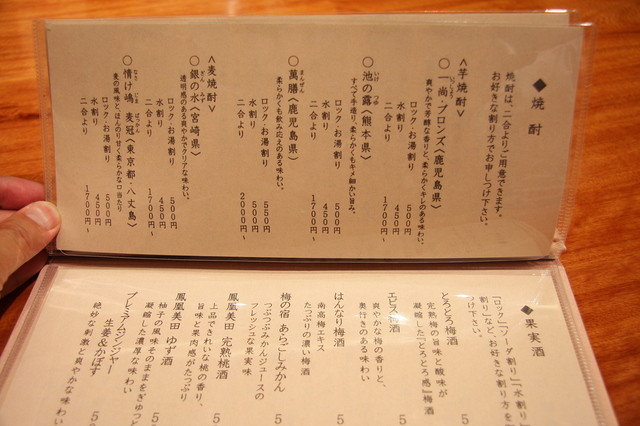 ◆焼酎
焼酎は、二合よりご用意できます。
お好きな割り方でお申しつけ下さい。
＜芋焼酎＞
○一尚・ブロンズ〈鹿児島県〉
爽やかで芳醇な香りと、柔らかくキレのある味わい。
ロック・お湯割り 500円
水割り 450円
二合より 1700円～
○池の露〈熊本県〉
すべて手造り。柔らかくもキメ細かい旨み。
ロック・お湯割り 500円
水割り 450円
二合より 1700円～
○萬膳〈鹿児島県〉
柔らかくも飲み応えのある味わい。
ロック・お湯割り 550円
水割り 500円
二合より 2000円～
＜麦焼酎＞
○銀の水〈宮崎県〉
透明感のある爽やかでクリアな味わい。
ロック・お湯割り 500円
水割り 450円
二合より 1700円～
○情け嶋 麦冠〈東京都・八丈島〉
麦の風味とほんのり甘く柔らかな口当たり
ロック・お湯割り 500円
水割り 450円
二合より 1700円～
◆果実酒
「ロック」「ソーダ割り」「水割り」
割り」など、お好きな割り方を
つけ下さい。
とろとろ梅酒 5
完熟梅の旨味と酸味が
凝縮した『とろとろ感』梅酒
爽やかな梅の香りと、
奥行きのある味わい 5
はんなり梅酒 5
南高梅エキス
たっぷりの濃い梅酒
梅の宿 あらごしみかん 5
つぶつぶみかんジュースの
フレッシュな果実味
鳳凰美田 完熟桃酒 5
上品できれいな桃の香り、
旨味と果肉感がたっぷり
鳳凰美田 ゆず酒 5
柚子の風味そのままをぎゅっと
凝縮した濃厚な味わい
プレミアムジンジャー
生姜&かぼす 5
絶妙な刺激と爽やかな味わい